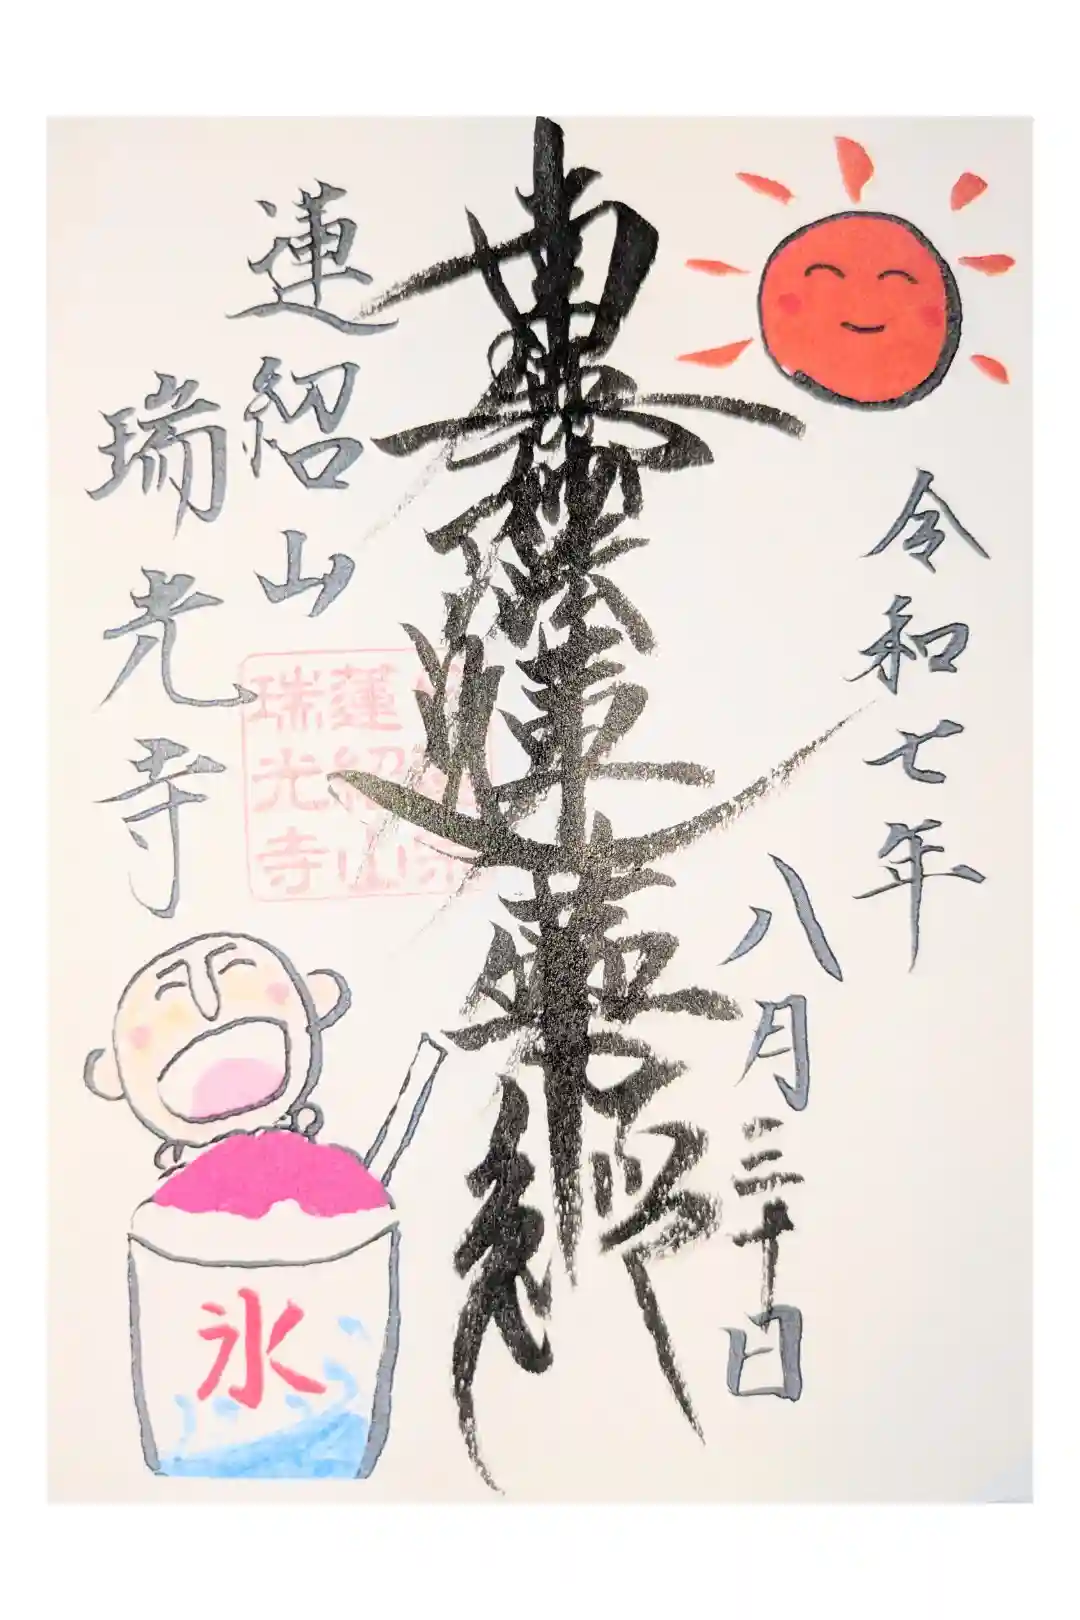 令和七年
八月三十日
南無妙法蓮華経
蓮紹山
瑞光寺
蓮紹山
瑞光寺
氷